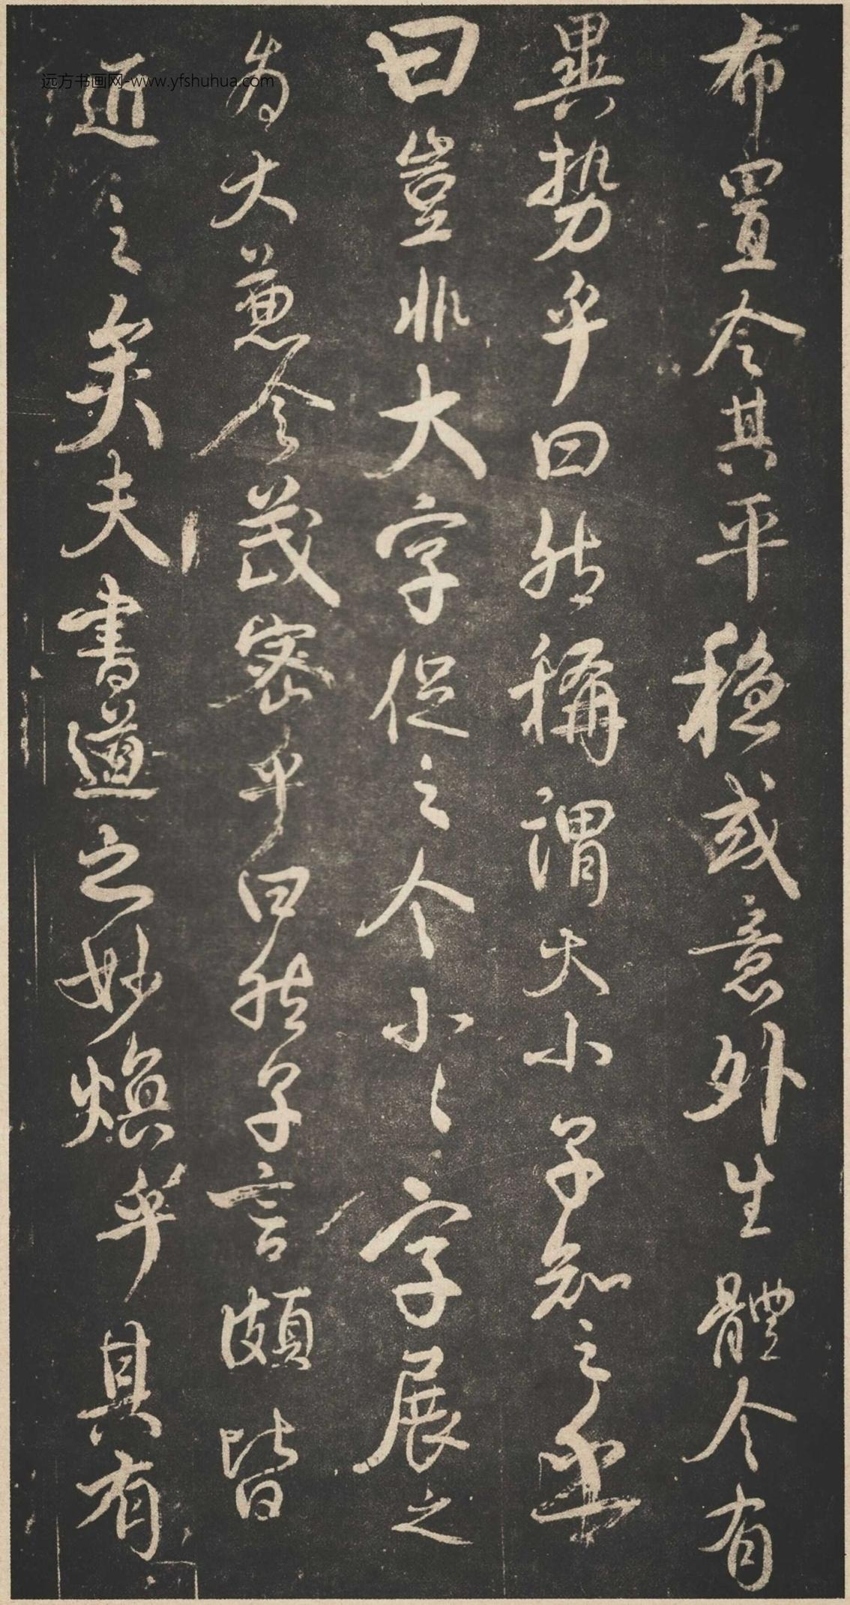 布置令其平稳或意外生體令有
異势乎曰然稱謂大小子知之乎
曰豈非大字促之令小小字展之
为大兼令茂密乎曰然子言頗皆
近之矣夫書道之妙焕乎具有
远方书画网-www.yfshuhua.com